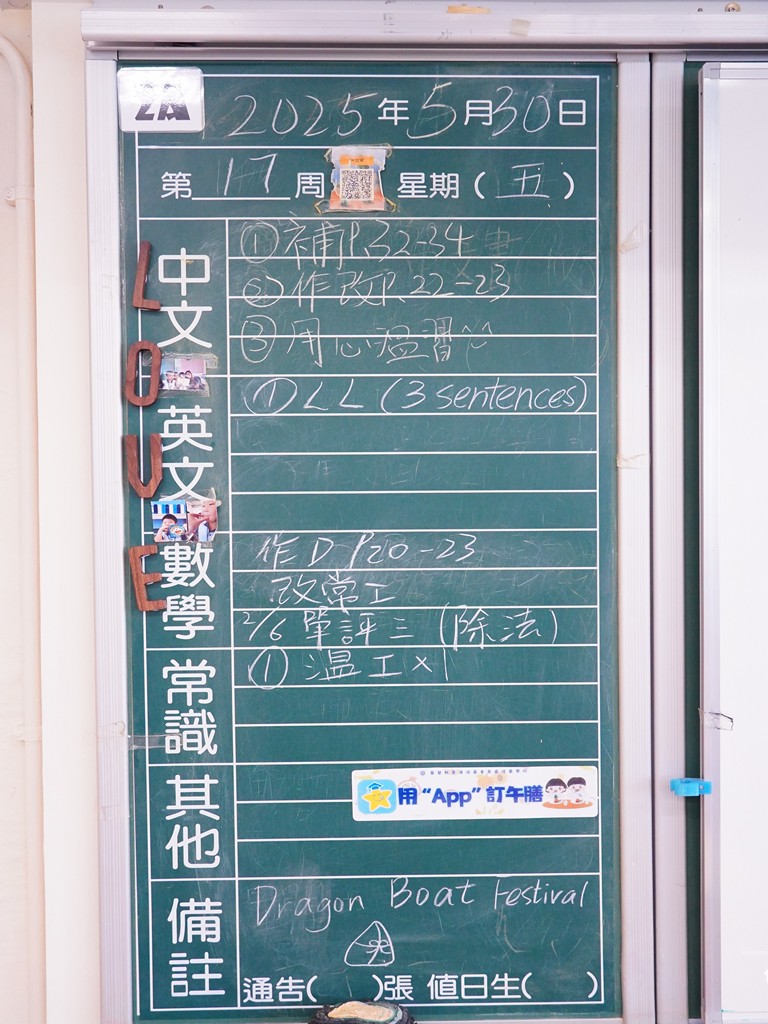 2A
2025年5月30日
第17周 星期(五)
LOVE
中文
①補P.32-34
②作改P.22-23
③用心溫習
英文
①LL (3 sentences)
數學
作D P20-23
改常工
2/6 單評三 (除法)
常識
①溫工×1
其他
用“App”訂午膳
備註
Dragon Boat Festival
通告( )張 值日生( )